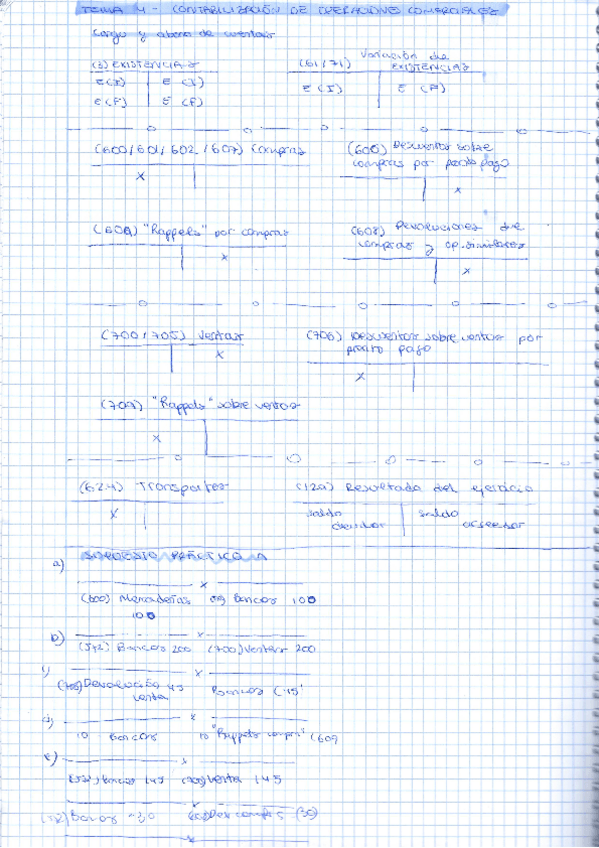 TEMA 4 - CONTABILIZACIÓN DE OPERACIONES COMERCIALES
Cargo y abono de cuentas
(3) EXISTENCIAS
(61/71) Variación de EXISTENCIAS
E(I) E(I)
E(F) E(F)
E(I) E(F)
(600/601/602/607) Compras
X
(606) Descuentos sobre
compras por pronto pago
X
(609) "Rappels" por compras
X
(608) Devoluciones de
compras y op. similares
X
(700/705) Ventas
X
(706) Descuentos sobre ventas por
pronto pago
X
(709) "Rappels" sobre ventas
X
(624) Transportes
X
(129) Resultado del ejercicio
saldo
deudor
saldo
acreedor
SUPUESTO PRÁCTICO
a)
x
(600) Mercaderías Bancos 100
100
b)
x
(572) Bancos 200 (700) Ventas 200
x
Devolución
venta
Bancos
x
10 Bancos 10 "Rappels compras" (609
x
Bancos 145 Venta 145
x
Bancos
x